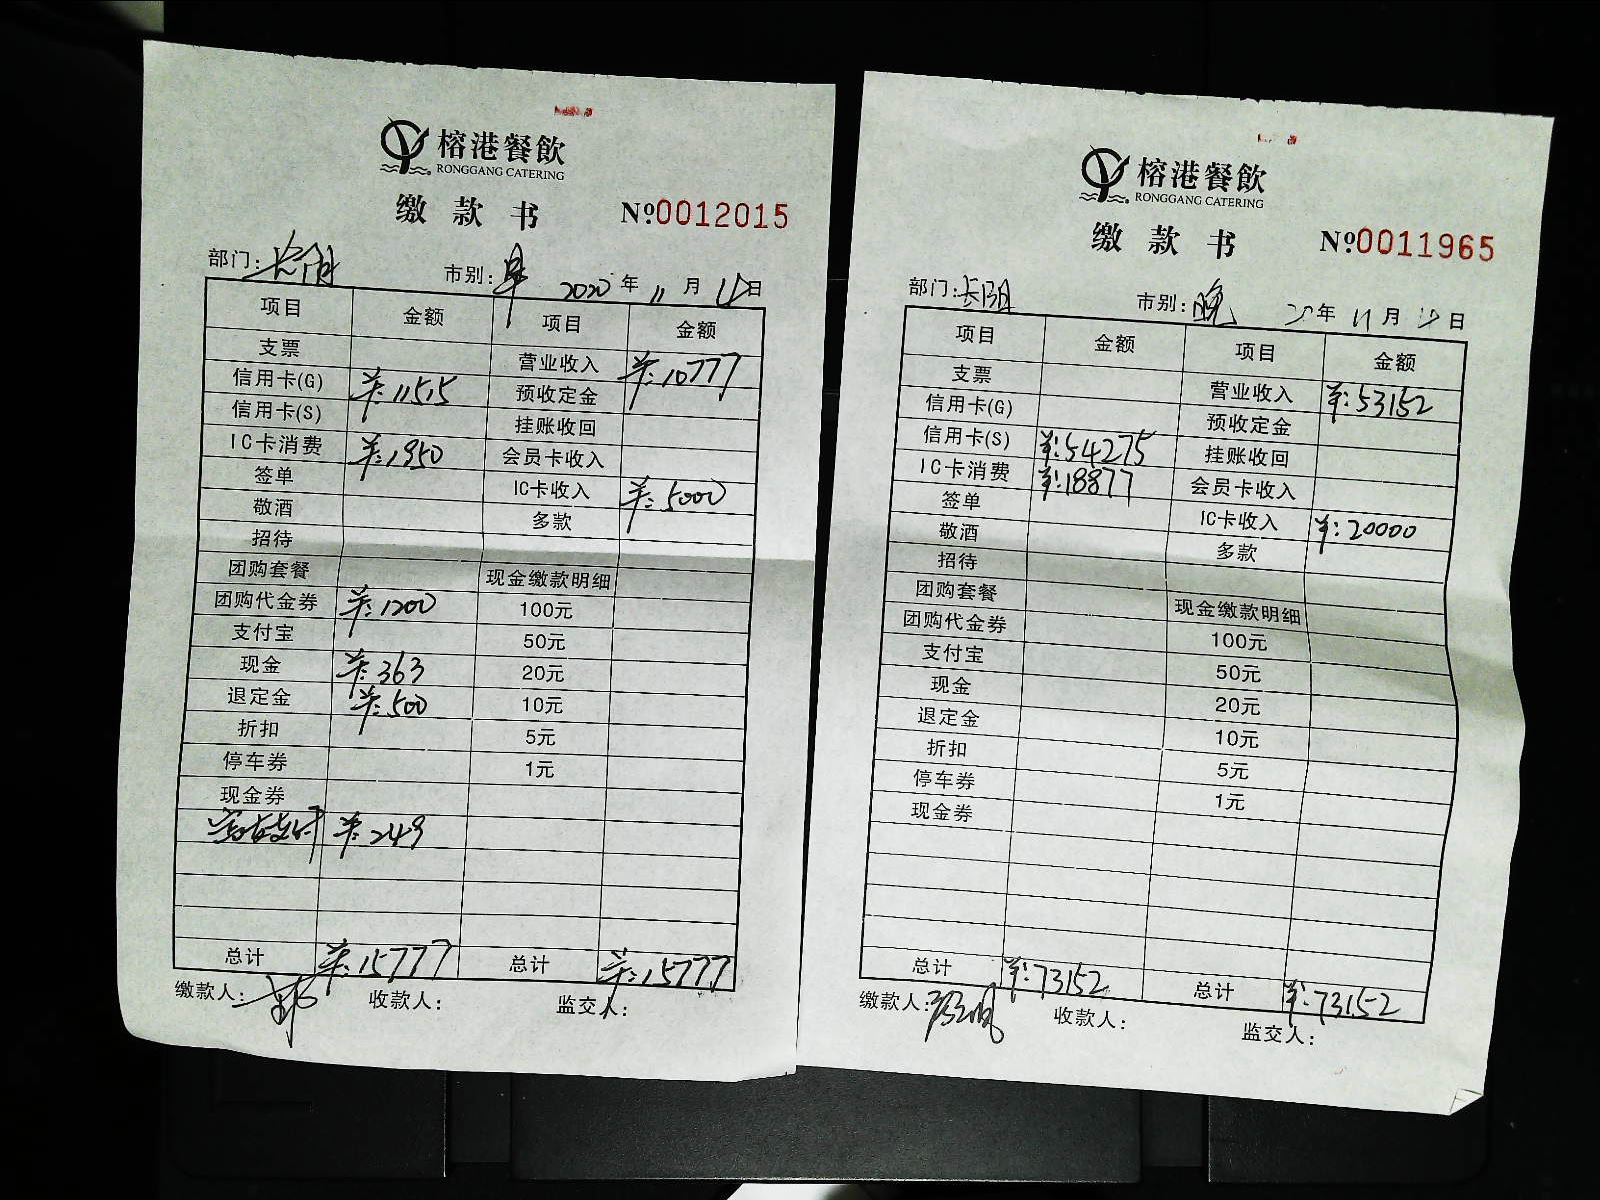 榕港餐飲
RONGGANG CATERING
缴款书
№0012015
部门: 市别:早 2020年11月 日
项目 金额 项目 金额
支票 营业收入 ¥:10777
信用卡(G) ¥:11515 预收定金
信用卡(S) 挂账收回
IC卡消费 ¥:1950 会员卡收入
签单 IC卡收入 ¥:5000
敬酒 多款
招待
团购套餐 现金缴款明细
团购代金券 ¥:1200 100元
支付宝 50元
现金 ¥:363 20元
退定金 ¥:500 10元
折扣 5元
停车券 1元
现金券
¥:249
总计 ¥:15777 总计 ¥:15777
缴款人: 收款人: 监交人:
榕港餐飲
RONGGANG CATERING
缴款书
№0011965
部门:长阳 市别:晚 年11月 日
项目 金额 项目 金额
支票 营业收入 ¥:53152
信用卡(G) 预收定金
信用卡(S) ¥:54275 挂账收回
IC卡消费 ¥:18877 会员卡收入
签单 IC卡收入 ¥:20000
敬酒 多款
招待
团购套餐 现金缴款明细
团购代金券 100元
支付宝 50元
现金 20元
退定金 10元
折扣 5元
停车券 1元
现金券
总计 ¥:73152 总计 ¥:73152
缴款人: 收款人: 监交人: